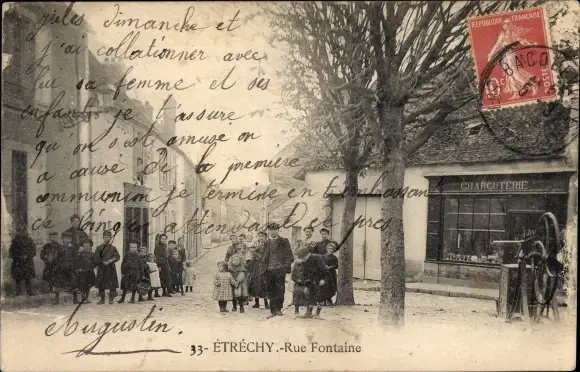 jules Dimanche et
j'ai collationner avec
sa femme et ses
enfants je t'assure
qu'on s'est amuse
a cause de la première
communion je termine en t'embrassant
attendant de près
Augustin
REPUBLIQUE FRANÇAISE
10
POSTES
CHARCUTERIE
33- ÉTRÉCHY.-Rue Fontaine